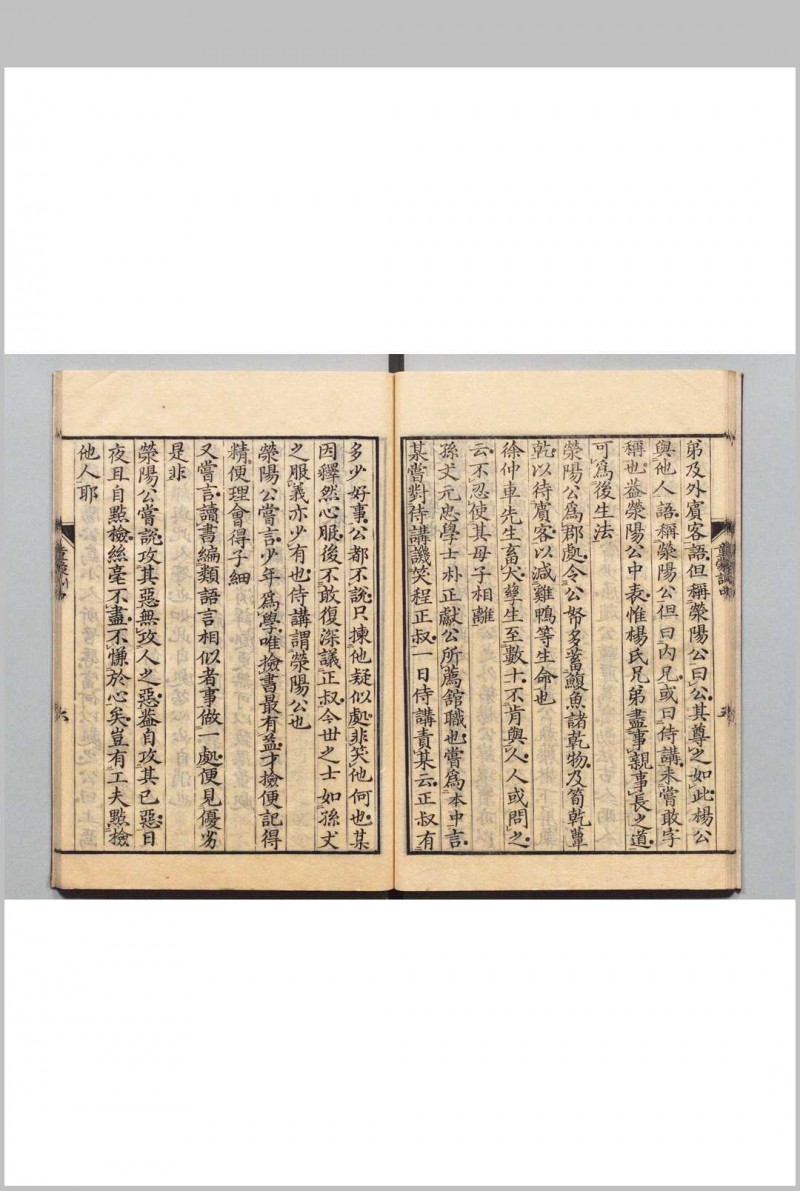 弟及外賓客語但稱滎陽公曰公其尊之如此楊公
與他人語稱滎陽公但曰内兄或曰侍講未嘗敢字
稱也蓋滎陽公中表惟楊氏兄弟盡事親事長之道
可爲後生法
滎陽公爲郡處令公帑多蓄鰒魚諸乾物及筍乾蕈
乾以待賓客以減雞鴨等生命也
徐仲車先生畜犬孽生至數十不肯與人人或問之
云不忍使其母子相離
孫丈元忠學士朴正獻公所薦舘職也嘗爲本中言
某嘗對侍講譏笑程正叔一日侍講責某云正叔有
多少好事公都不說只揀他疑似處非笑他何也某
因釋然心服後不敢復深議正叔今世之士如孫丈
之服義亦少有也侍講謂滎陽公也
滎陽公嘗言少年爲學唯撿書最有益才撿便記得
精便理會得子細
又嘗言讀書編類語言相似者事做一處便見優劣
是非
滎陽公嘗說攻其惡無攻人之惡蓋自攻其己惡日
夜且自點檢絲毫不盡不慊於心矣豈有工夫點檢
他人耶
六